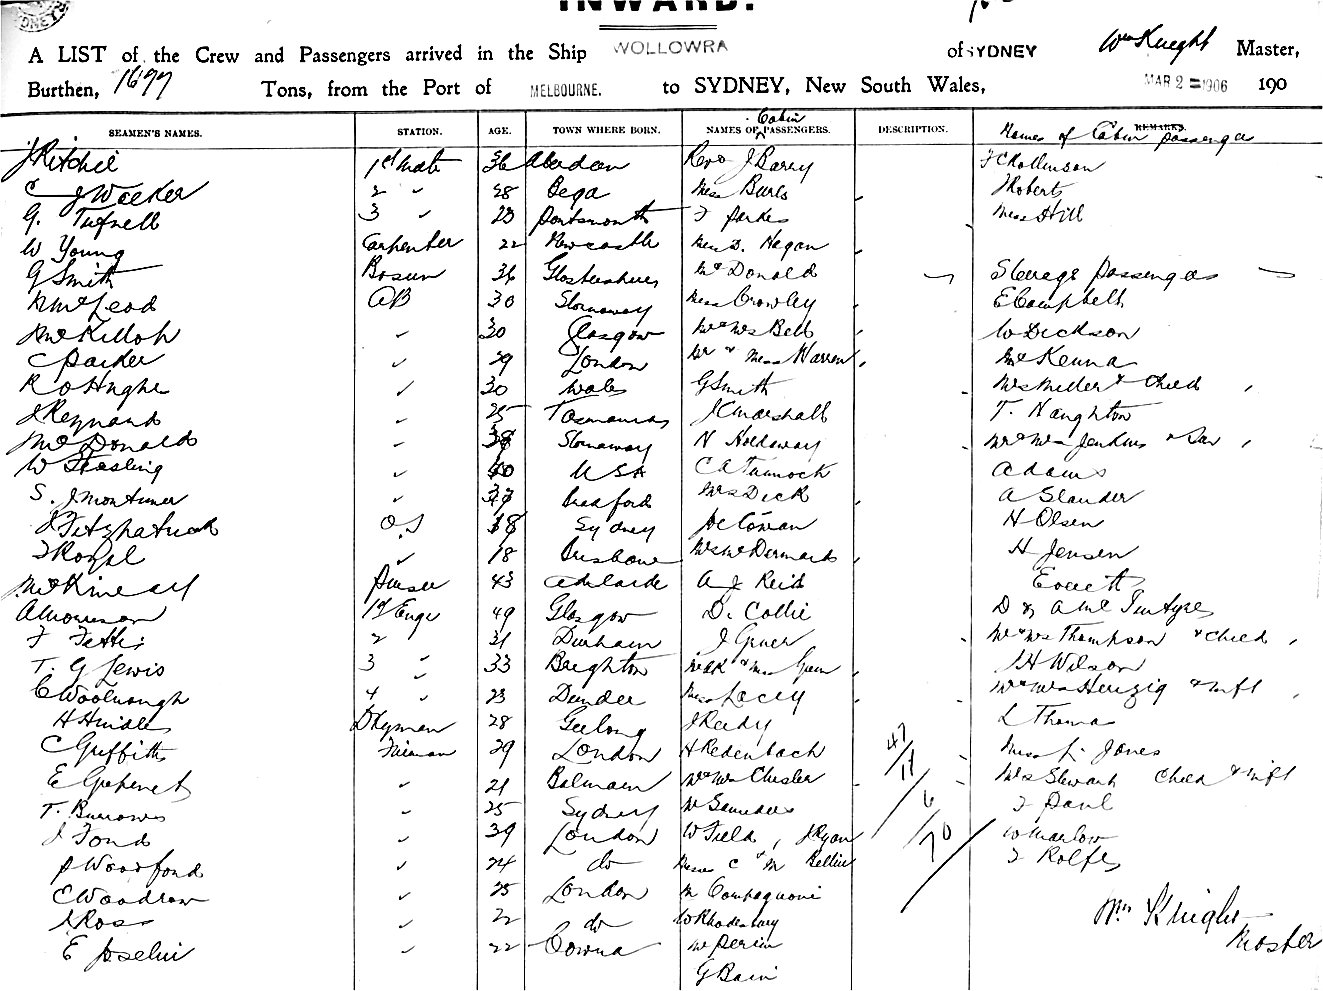 SYDNEY
INWARD.
A LIST of the Crew and Passengers arrived in the Ship WOLLOWRA of SYDNEY Wm Knight Master,
Burthen, 1677 Tons, from the Port of MELBOURNE. to SYDNEY, New South Wales, MAR 2 1906 190
SEAMEN'S NAMES. STATION. AGE. TOWN WHERE BORN. NAMES OF Cabin PASSENGERS. DESCRIPTION. REMARKS. Names of Cabin passengers
J Ritchie 1st Mate 36 Aberdeen Revd J Barry F C Rollinson
C J Weeker 2 " 28 Bega Miss Burls J Roberts
G. Tufnell 3 " 23 Portsmouth F Parkes Miss Hill
W Young Carpenter 22 Newcastle Miss D. Hegan
G Smith Bosun 36 Glostershire McDonald Steerage Passengers
D McLeod AB 30 Stornoway Miss Crowley E Campbell
30 Glasgow Mr & Mrs Bell W Dickson
C Parker 29 London Mr & Miss Warren McKenna
R O Hughe 30 Wales G Smith Mrs Miller & Child
J Reynard 25 Tasmania J C Marshall T. Naughton
McDonald Stornoway N Holdaway Mr & Mrs Jenkins & Son
W Stasling 40 USA Adams
S. J Mortimer 37 Bradford Mrs Dick A Slander
J Fitzpatrick O.S 18 Sydney Cowan H Olsen
18 Brisbane Mrs McDermott H Jensen
Purser 43 Adelaide A J Reid Everett
A Morrison 1st Engr 49 Glasgow D. Collie D & A McIntyre
F Fettis 2 31 Durham J Grier Mr & Mrs Thompson & Child
T. G Lewis 3 " 33 Brighton J H Wilson
C Woolnough 4 " 23 Dundee Miss Lacey Mr & Mrs Herzig & inft
H Hindle Dkyman 28 Geelong J Ready L Thomas
C Griffiths Fireman 29 London H Redenbach 47 Miss L. Jones
E 21 Balmain Mr & Mrs Chesler 17 Mrs Stewart Child & inft
T. Burrows 25 Sydney W Saunders 6 F Paul
J Fond 39 London W Field, J Ryan 70 W Marlow
P Woodford 24 do Misses C & M Bellin F Rolfe
E Woodrow 25 London M Compagnoni
J Ross 22 do W Rhodenbury Wm Knight
E Joselin 22 Cowra M Perin Master
G Bain